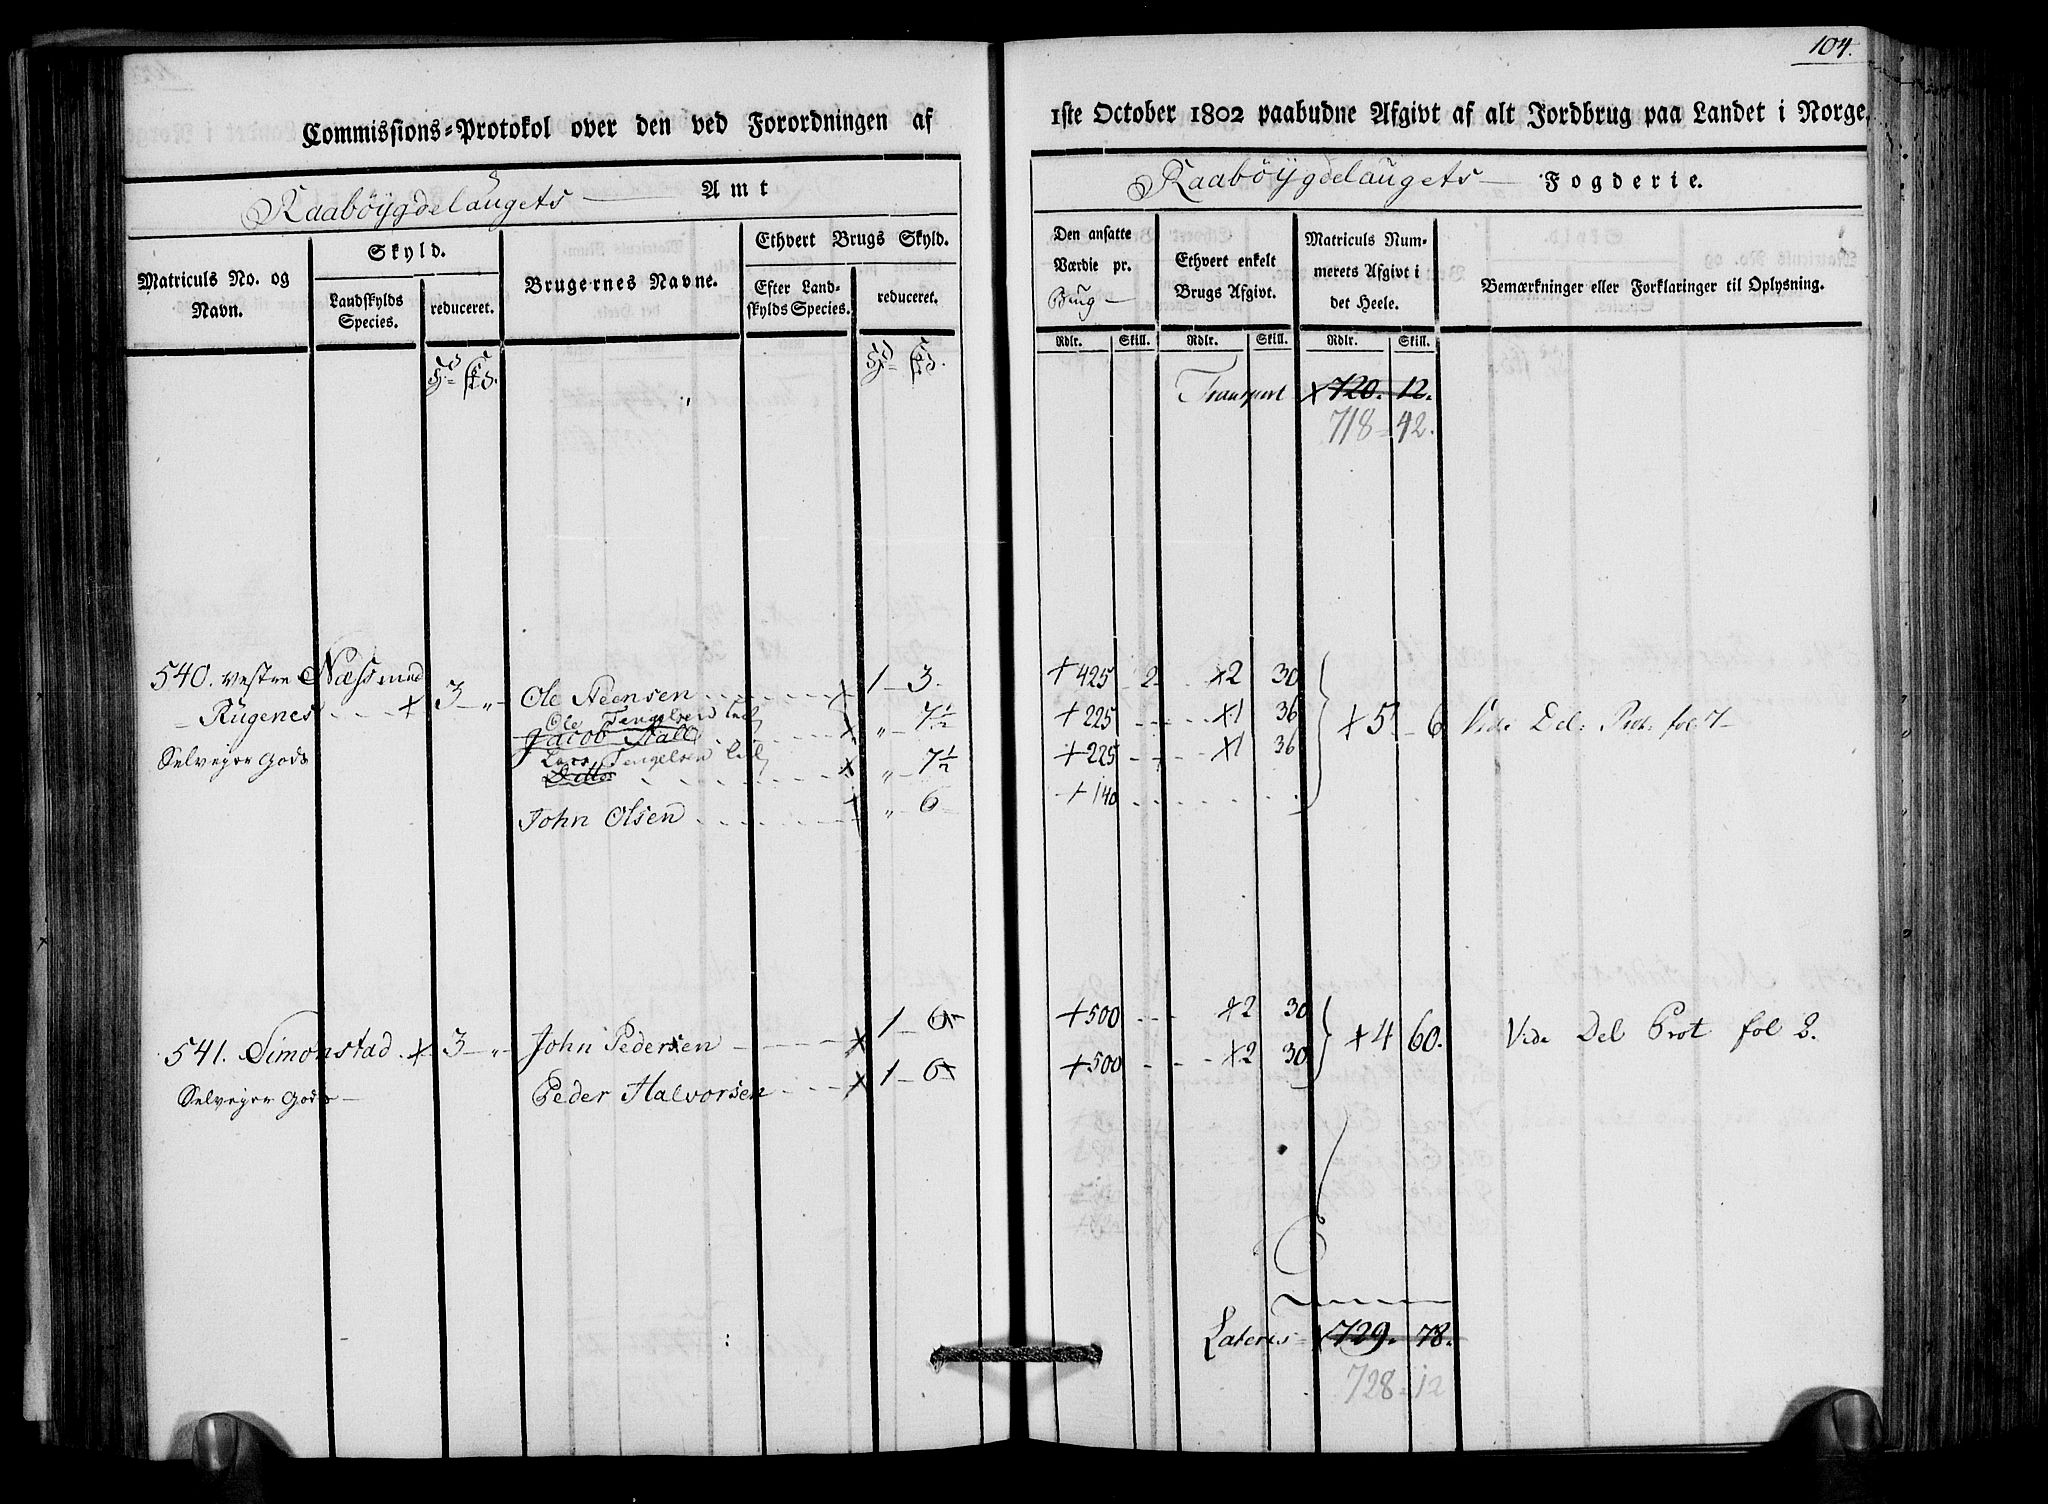 104.
Commissions=Protokol over den ved Forordningen af
1ste October 1802 paabudne Afgivt af alt Jordbrug paa Landet i Norge.
Raabøygdelaugets Amt
Raabøygdelaugets Fogderie.
Matriculs No. og Navn.
Skyld.
Landskylds Species.
reduceret.
Brugernes Navne.
Ethvert Brugs Skyld.
Efter Landskylds Species.
reduceret.
Den ansatte Værdie pr. Brug
Ethvert enkelt Brugs Afgivt.
Matriculs Nummerets Afgivt i det Heele.
Bemærkninger eller Forklaringer til Oplysning.
Rdlr. Skill. Rdlr. Skill. Rdlr. Skill.
Transport x 720. 12.
718 = 42.
540. vestre Næss med x 3 - „ - Ole Steensen x 1 - 3. + 425 - 2 - x2 30
- Rugenes Ole Tengelsen x „ - 7 1/2 + 225 x1 36 x 5 - 6 Vide Del: Prot. fol 7 -
Jacob Stall
Selveyer Gods Lars Tengelsen x „ - 7 1/2 + 225 x1 36
Ditto
John Olsen „ - 6 - + 140
541. Simonstad x 3 - „ - John Pedersen x 1 - 6 + 500 x2 30 x 4 60. Vide Del Prot fol 8.
Selveyer Gods - Peder Halvorsen x 1 - 6 + 500 x2 30
Lateris = 729. 78.
728 = 12